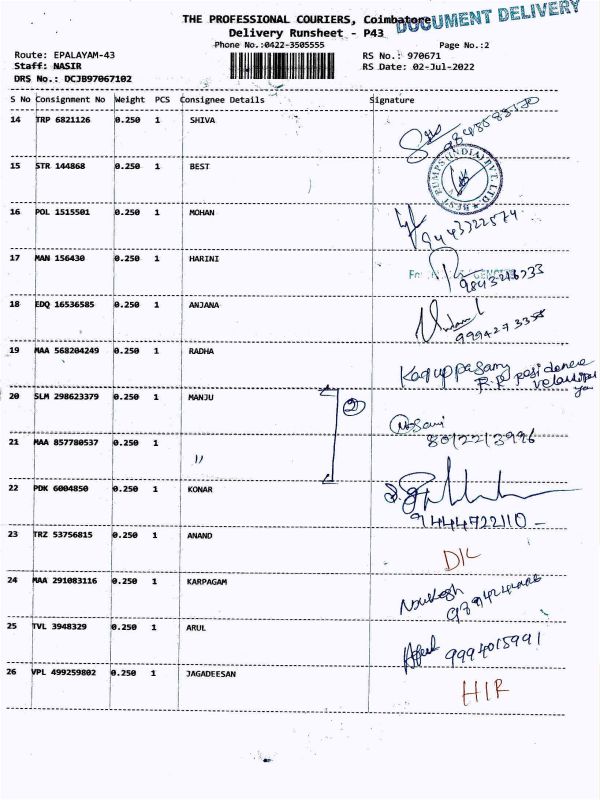 THE PROFESSIONAL COURIERS, Coimbatore
DOCUMENT DELIVERY
Delivery Runsheet - P43
Phone No.:0422-3505555
Page No.:2
Route: EPALAYAM-43
RS No.: 970671
Staff: NASIR
RS Date: 02-Jul-2022
DRS No.: DCJB97067102
S No Consignment No Weight PCS Consignee Details Signature
14 TRP 6821126 0.250 1 SHIVA
15 STR 144868 0.250 1 BEST
BEST PUMPS (INDIA) PVT. LTD.
16 POL 1515501 0.250 1 MOHAN
9443322574
17 MAN 156430 0.250 1 HARINI
18 EDQ 16536585 0.250 1 ANJANA
19 MAA 568204249 0.250 1 RADHA
Karuppasamy
R.R residence
20 SLM 298623379 0.250 1 MANJU
2
21 MAA 857780537 0.250 1 〃
8012213996
22 PDK 6004850 0.250 1 KONAR
9444722110 -
23 TRZ 53756815 0.250 1 ANAND
24 MAA 291083116 0.250 1 KARPAGAM
25 TVL 3948329 0.250 1 ARUL
9994015991
26 VPL 499259802 0.250 1 JAGADEESAN